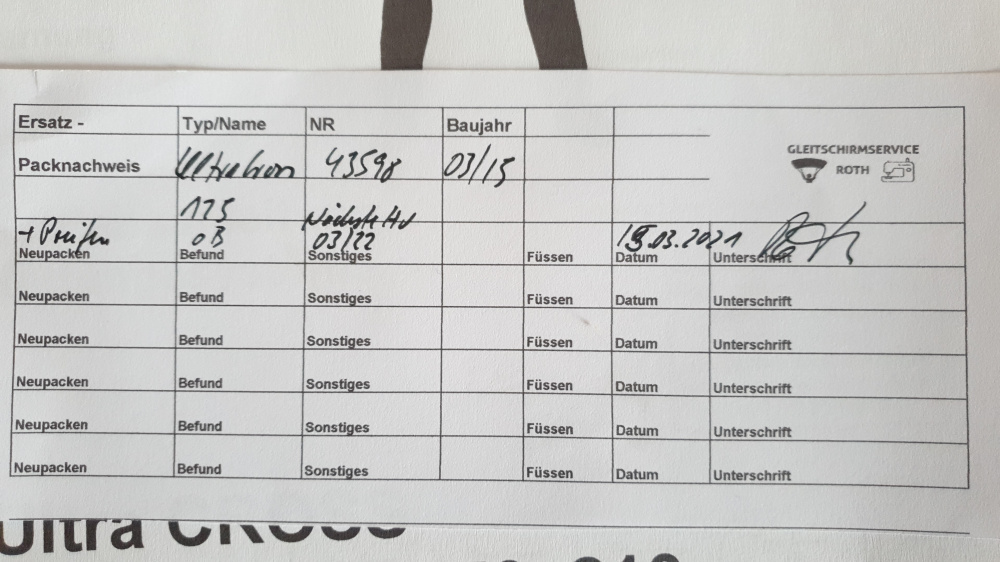 Ersatz - Typ/Name NR Baujahr
GLEITSCHIRMSERVICE
ROTH
Packnachweis 43598 03/15
125 Nächste
+ Prüfen oB 03/22 15.03.2021
Neupacken Befund Sonstiges Füssen Datum Unterschrift
Neupacken Befund Sonstiges Füssen Datum Unterschrift
Neupacken Befund Sonstiges Füssen Datum Unterschrift
Neupacken Befund Sonstiges Füssen Datum Unterschrift
Neupacken Befund Sonstiges Füssen Datum Unterschrift
Neupacken Befund Sonstiges Füssen Datum Unterschrift
Ultra CROSS